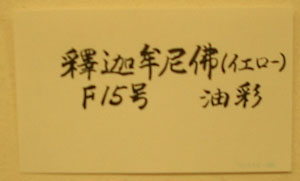 釋迦牟尼佛(イエロー)
F15号 油彩